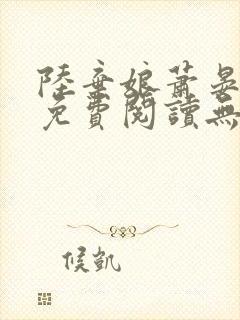 陸棄娘蕭晏
免費閱讀無
候凱